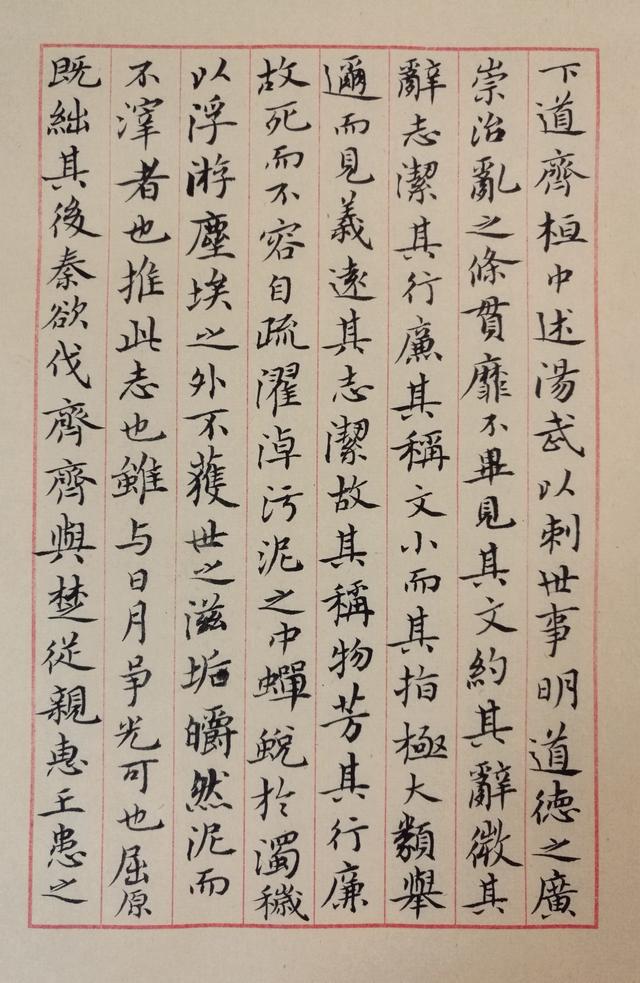 下道齊桓中述湯武以刺世事明道德之廣
崇治亂之條貫靡不畢見其文約其辭微其
辭志潔其行廉其稱文小而其指極大類舉
邇而見義遠其志潔故其稱物芳其行廉
故死而不容自疏濯淖污泥之中蟬蛻於濁穢
以浮游塵埃之外不獲世之滋垢皭然泥而
不滓者也推此志也雖与日月爭光可也屈原
既絀其後秦欲伐齊齊與楚從親惠王患之